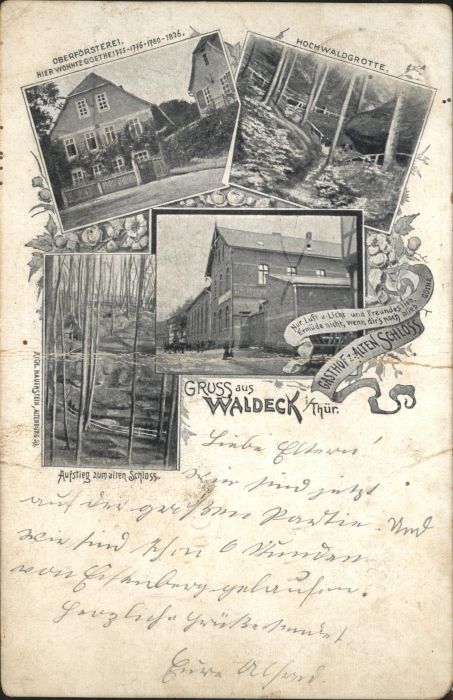 OBERFÖRSTEREI,
HIER WOHNTE GOETHE 1775-1776-1780-1826.
HOCHWALDGROTTE.
Nur Luft u. Licht und Freundeslieb,
Ermüde nicht, wenn dir's noch blieb.
GOETHE
GASTHOF z. ALTEN SCHLOSS
GRUSS aus
WALDECK i/Thür.
Aufstieg zum alten Schloss.
Liebe Eltern!
Wir sind jetzt
auf der großen Partie. Und
wir sind schon 6 Stunden
von Eisenberg gelaufen.
Herzliche Grüße sendet
Eure Alfred.